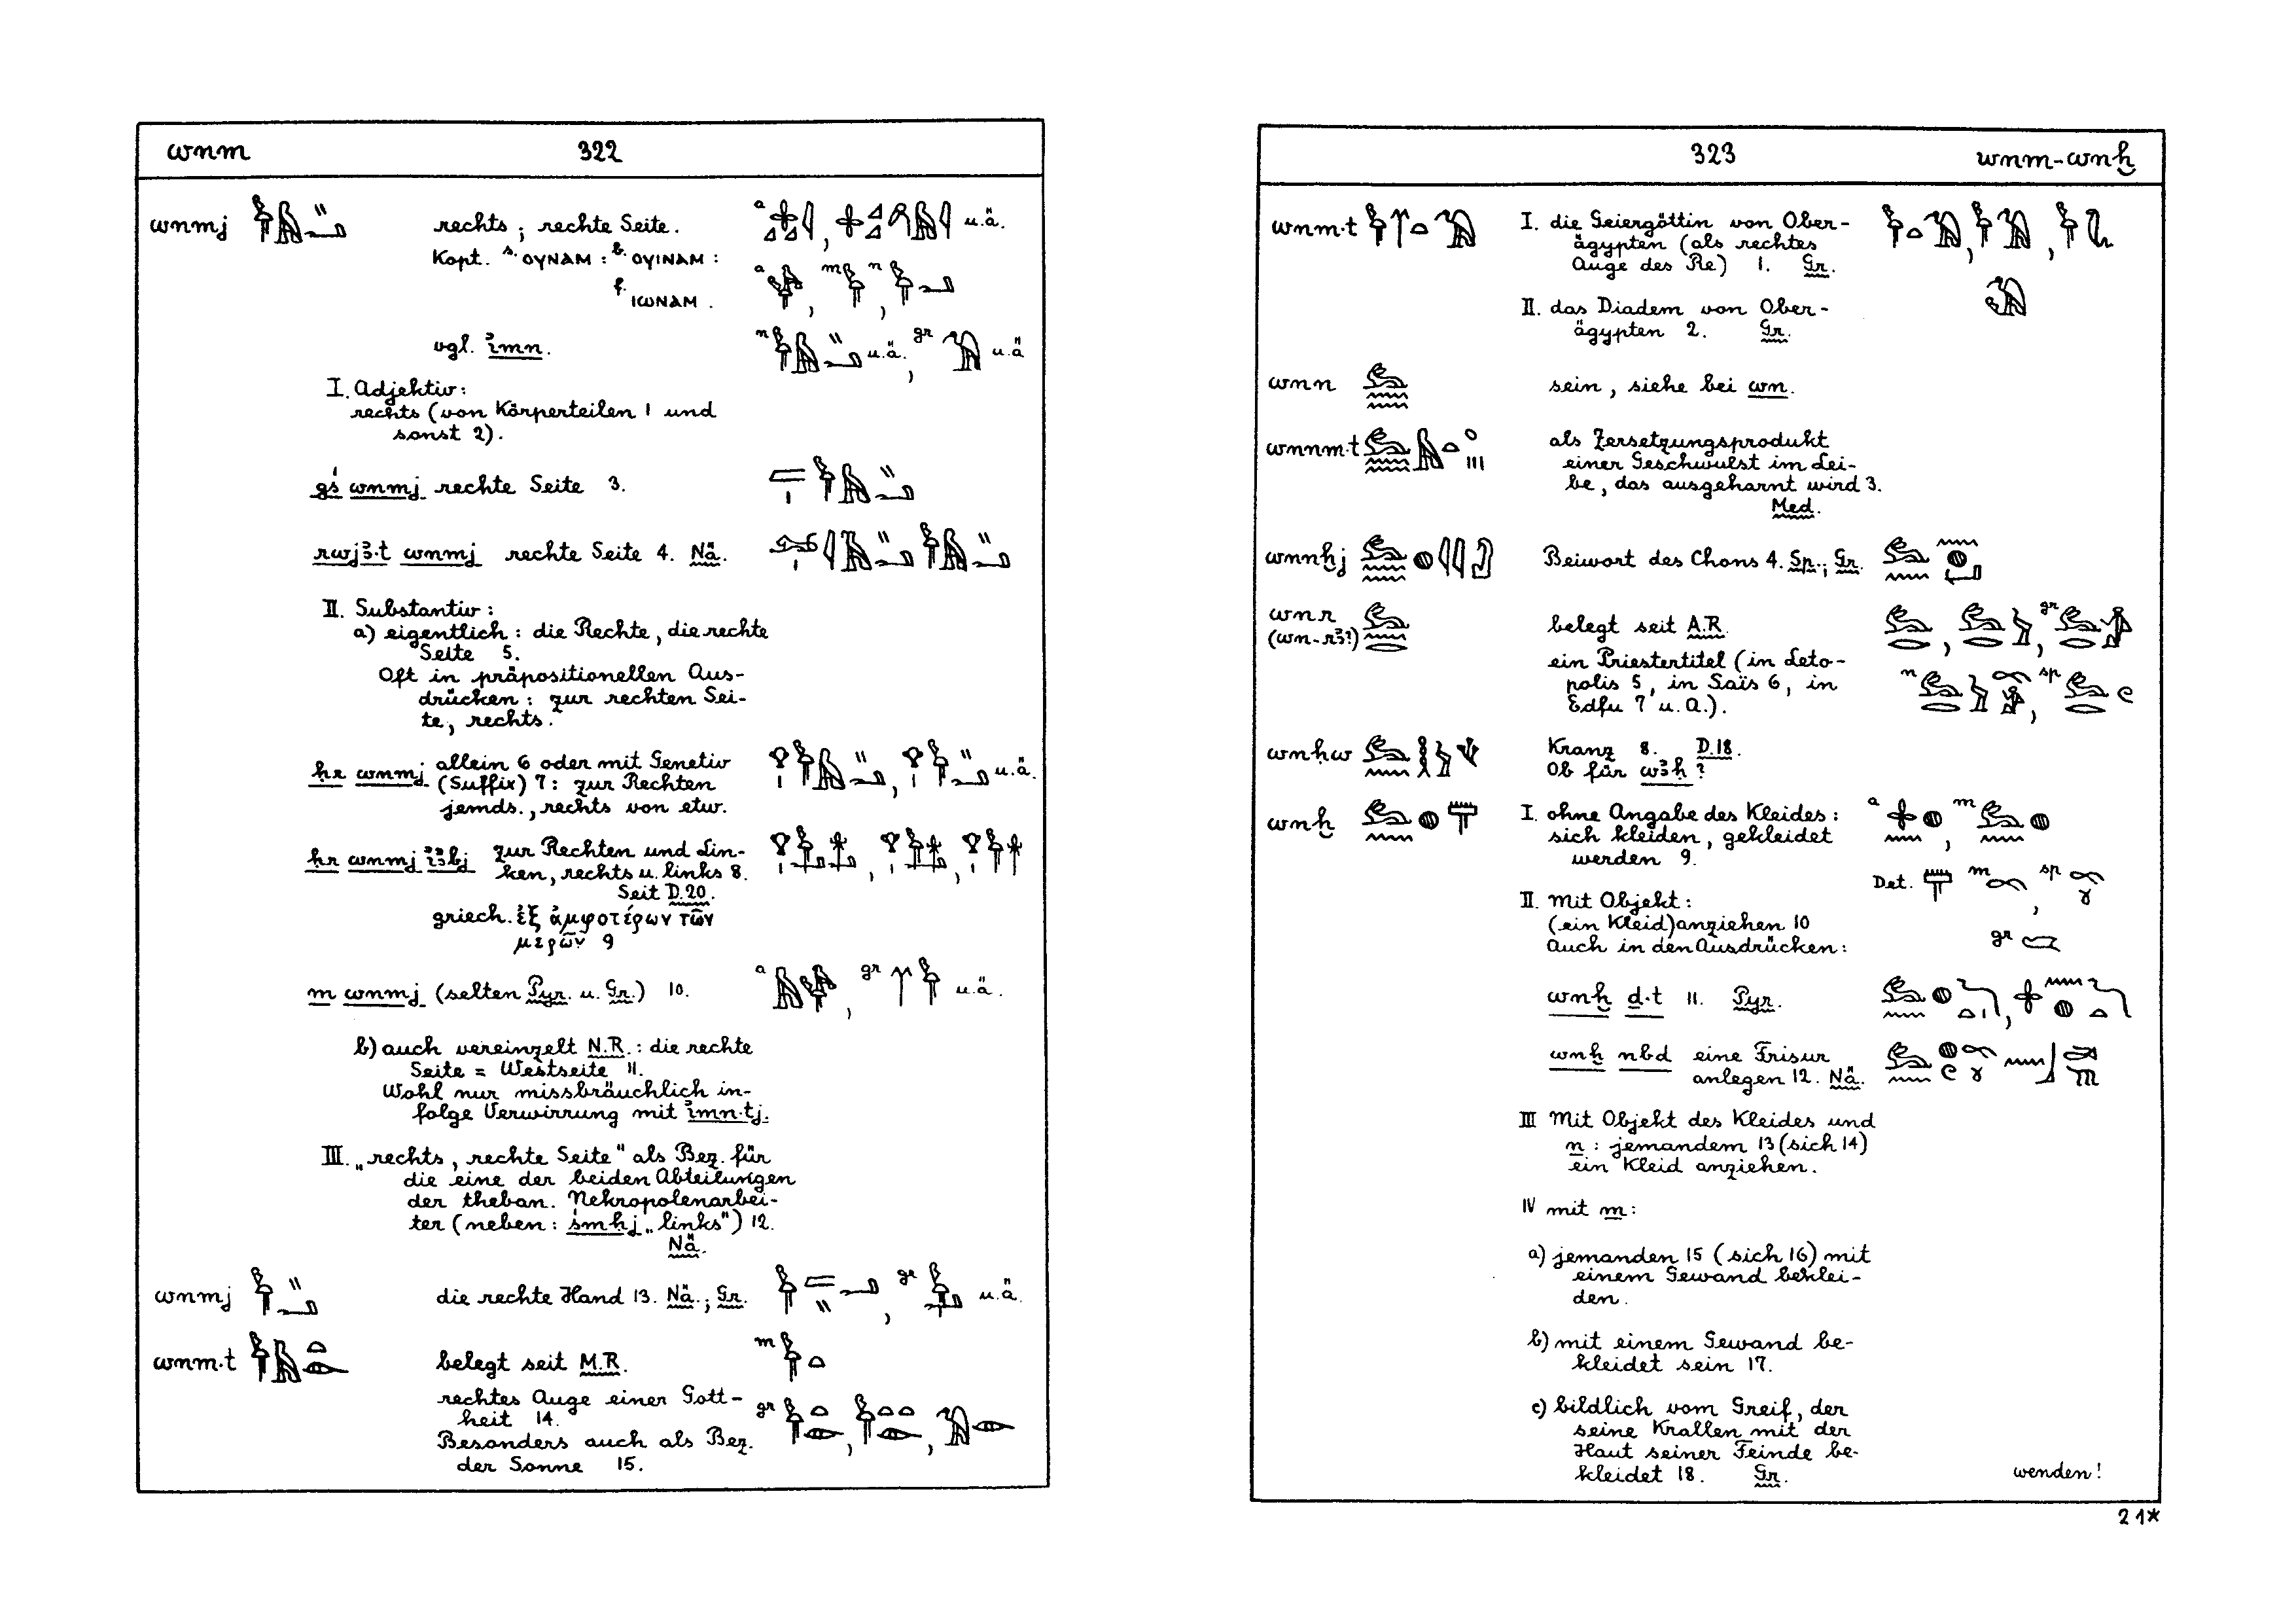 wnm 322
wnmj rechts; rechte Seite. a , u.ä.
Kopt. s. ⲟⲩⲛⲁⲙ : b. ⲟⲩⲓⲛⲁⲙ :
f. ⲓⲱⲛⲁⲙ . a , m , n
vgl. ı͗mn. n u.ä., gr u.ä
I. Adjektiv:
rechts (von Körperteilen 1 und
sonst 2).
gś wnmj rechte Seite 3.
rwjꜣ.t wnmj rechte Seite 4. Nä.
II. Substantiv:
a) eigentlich: die Rechte, die rechte
Seite 5.
Oft in präpositionellen Aus-
drücken: zur rechten Sei-
te, rechts.
ḥr wnmj allein 6 oder mit Genetiv
(Suffix) 7: zur Rechten u.ä.
jemds., rechts von etw.
ḥr wnmj ı͗ꜣbj zur Rechten und Lin-
ken, rechts u. links 8.
Seit D.20.
griech. ἐξ ἀμφοτέρων τῶν
μερῶν 9
m wnmj (selten Pyr. u. Gr.) 10. a , gr u.ä.
b) auch vereinzelt N.R.: die rechte
Seite = Westseite 11.
Wohl nur missbräuchlich in-
folge Verwirrung mit ı͗mn.tj.
III. „rechts, rechte Seite" als Bez. für
die eine der beiden Abteilungen
der theban. Nekropolenarbei-
ter (neben: śmḥj „links") 12.
Nä.
wnmj die rechte Hand 13. Nä.; Gr. , gr u.ä.
wnm.t belegt seit M.R. m
rechtes Auge einer Gott-
heit 14. gr
Besonders auch als Bez.
der Sonne 15.
323 wnm-wnḫ
wnm.t I. die Geiergöttin von Ober-
ägypten (als rechtes
Auge des Re) 1. Gr.
II. das Diadem von Ober-
ägypten 2. Gr.
wnn sein, siehe bei wn.
wnnm.t als Zersetzungsprodukt
einer Geschwulst im Lei-
be, das ausgeharnt wird 3.
Med.
wnnḫj Beiwort des Chons 4. Sp.; Gr.
wnr
(wn-rꜣ?) belegt seit A.R. , , gr
ein Priestertitel (in Leto-
polis 5, in Saïs 6, in n , sp
Edfu 7 u. a.).
wnḥw Kranz 8. D.18.
Ob für wꜣḥ?
wnḫ I. ohne Angabe des Kleides: a , m
sich kleiden, gekleidet
werden 9.
Det. m , sp
II. Mit Objekt:
(ein Kleid) anziehen 10
Auch in den Ausdrücken: gr
wnḫ d.t 11. Pyr.
wnḫ nbd eine Frisur
anlegen 12. Nä.
III Mit Objekt des Kleides und
n: jemandem 13 (sich 14)
ein Kleid anziehen.
IV mit m:
a) jemanden 15 (sich 16) mit
einem Gewand beklei-
den.
b) mit einem Gewand be-
kleidet sein 17.
c) bildlich vom Greif, der
seine Krallen mit der
Haut seiner Feinde be-
kleidet 18. Gr. wenden!
21*